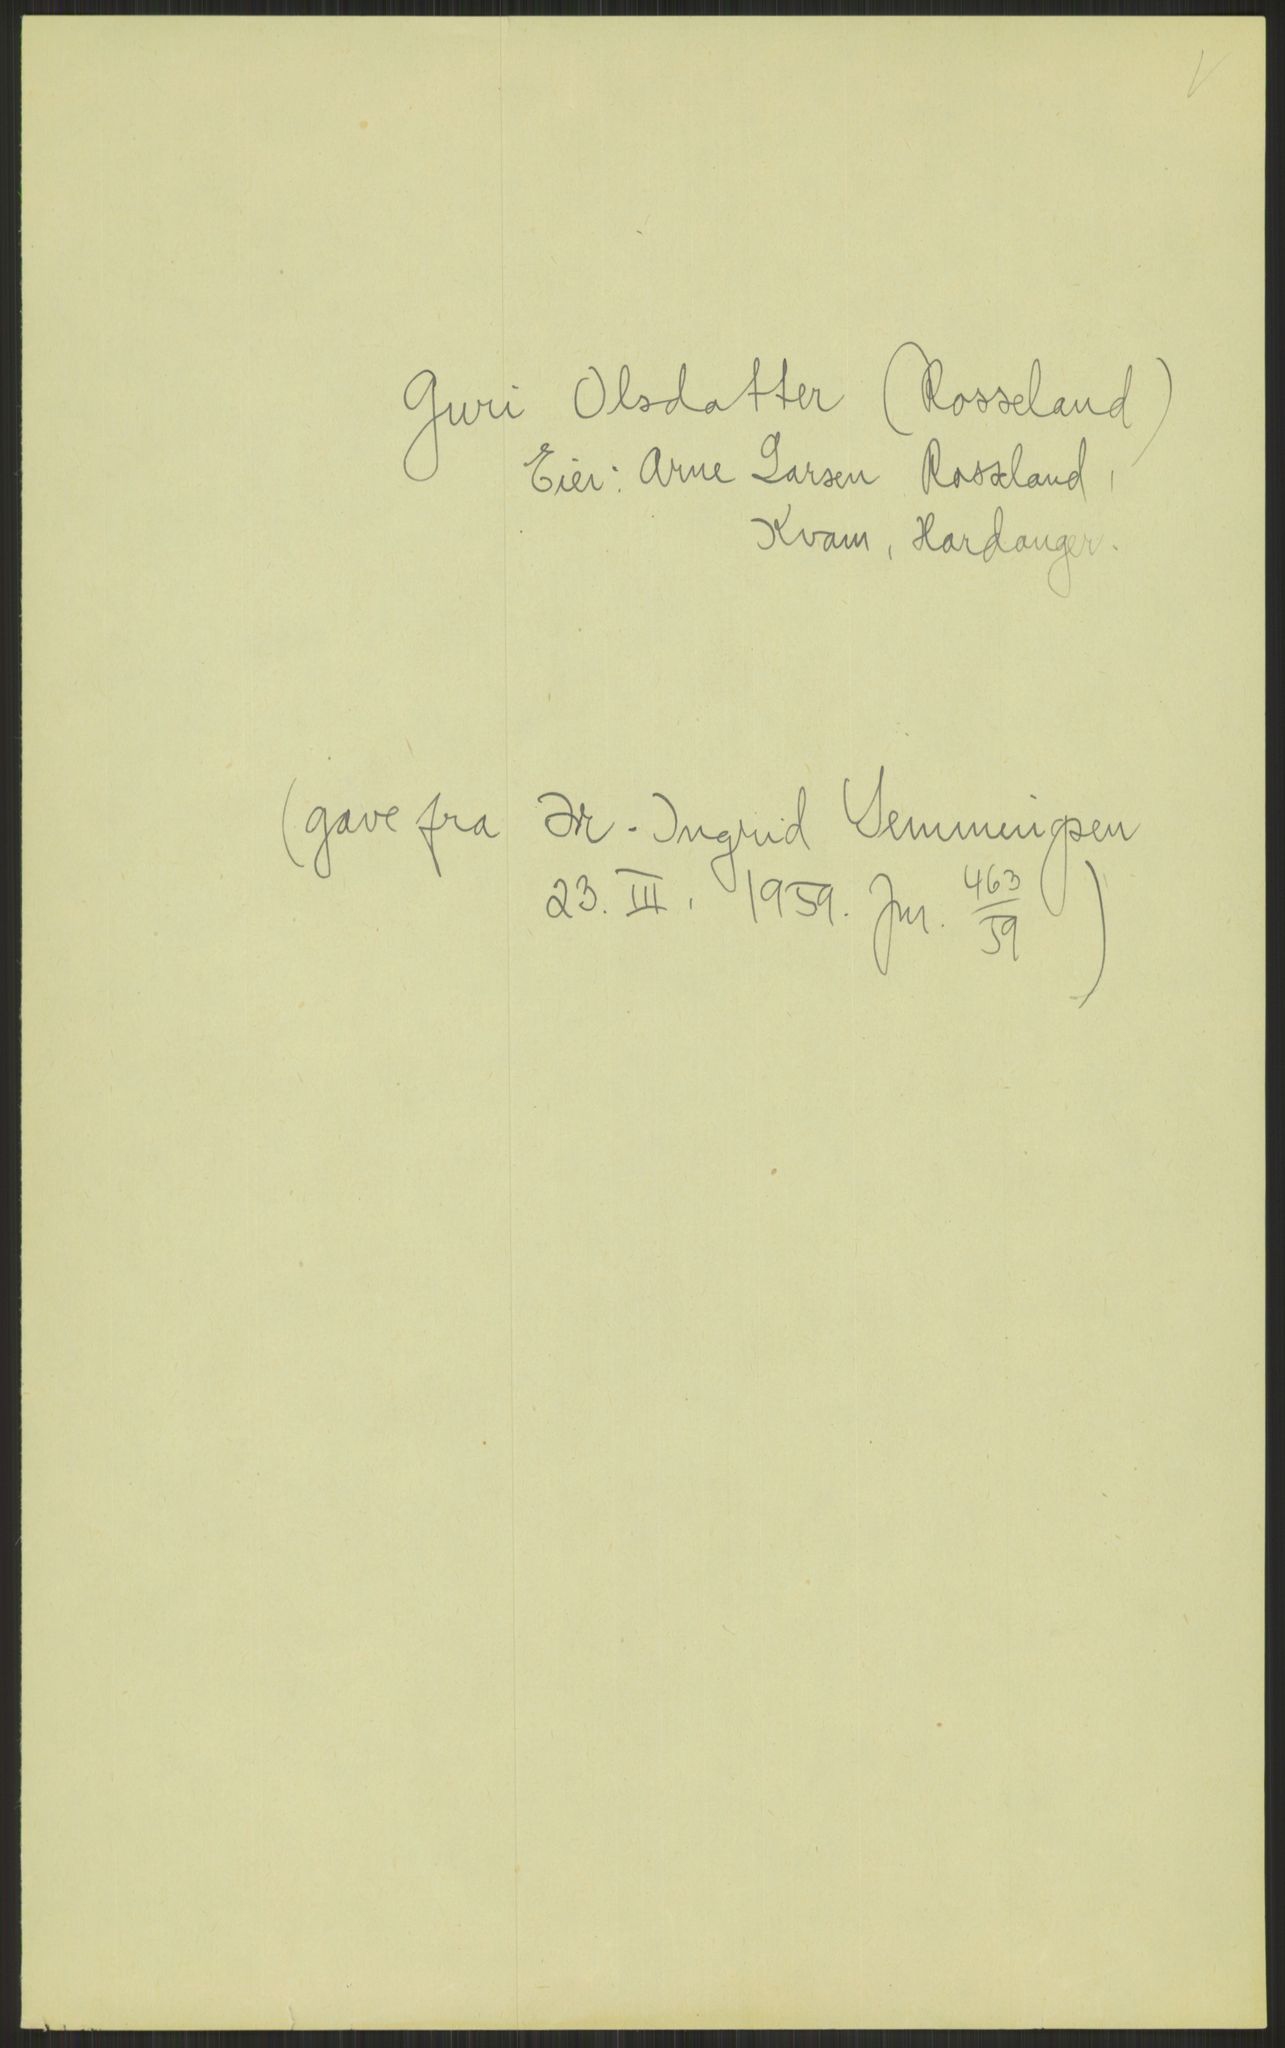 Guri Olsdatter (Rosseland)
Eier: Arne Larsen Rosseland,
Kvam, Hardanger.
(gave fra Dr. Ingrid Semmingsen
23. III. 1959. Jnr. 463/59)